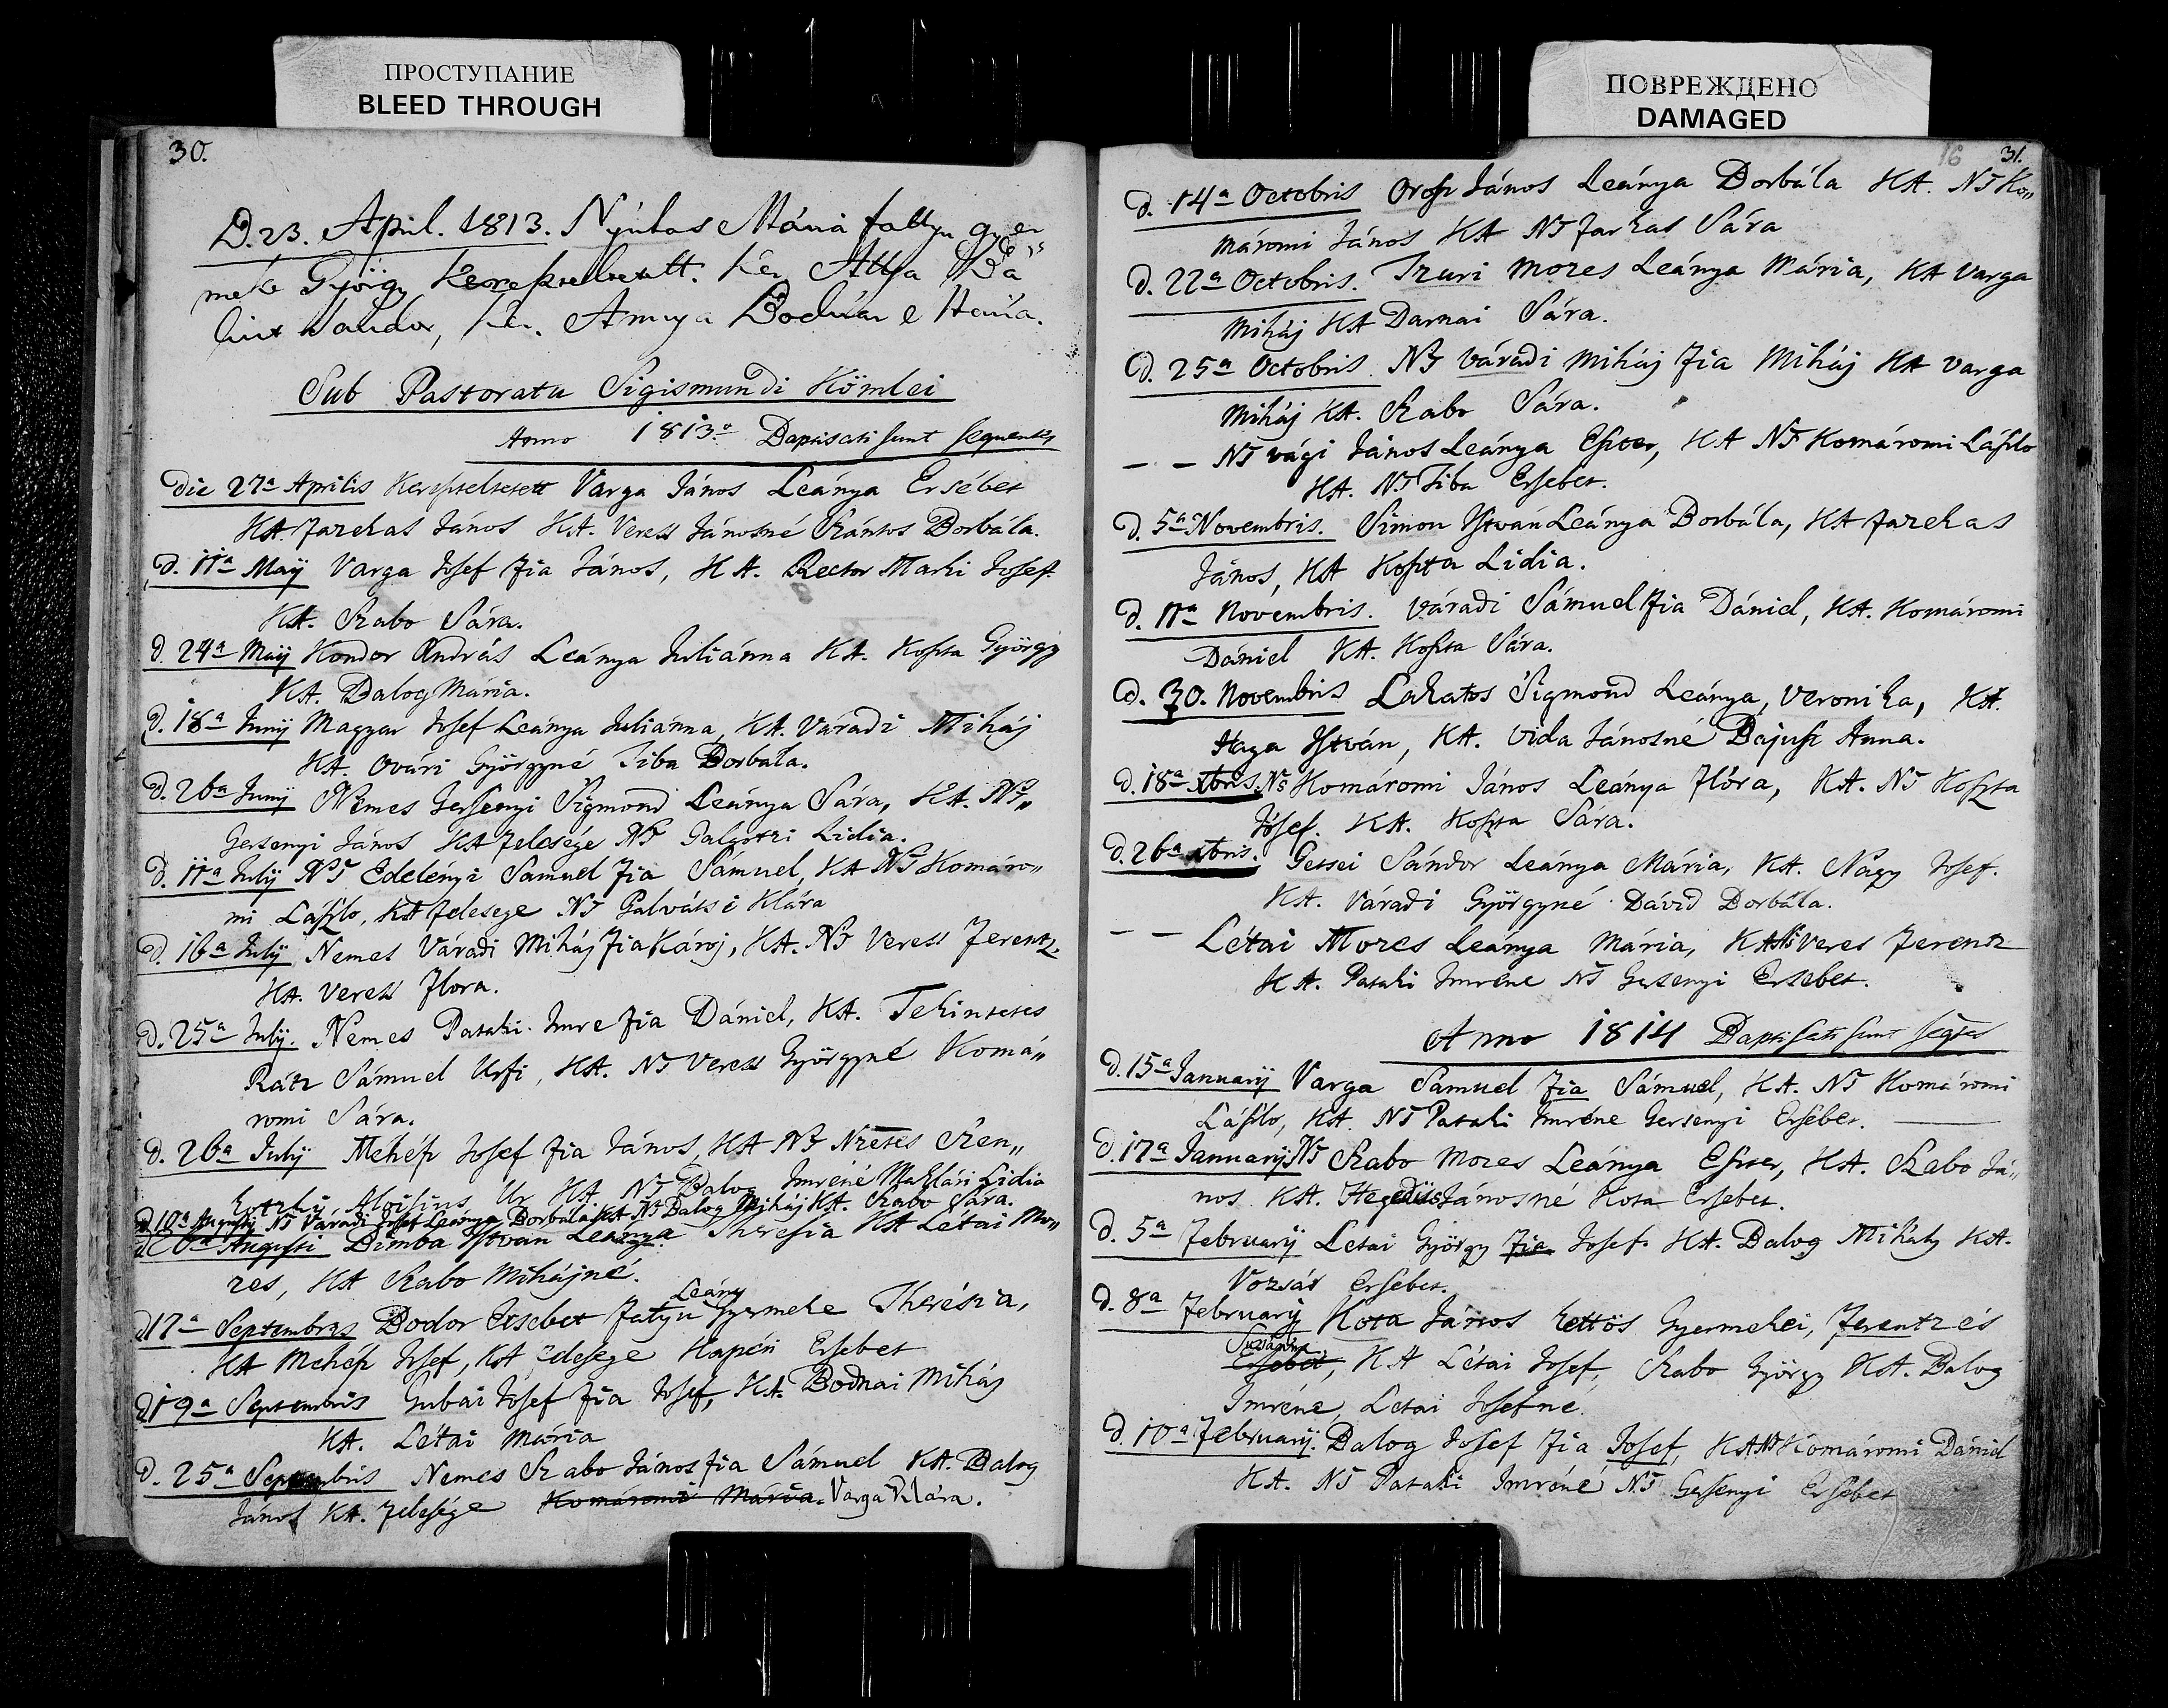 ПРОСТУПАНИЕ
BLEED THROUGH
30.
D. 23. April. 1813. Nyúlas Mária fattyu gyer
meke György Kereszteltetett. Ker. Attya Bá
lint Sándor, Ker. Annya Bodnár e Mária.
Sub Pastoratu Sigismundi Kömlei
Anno 1813o Baptisati sunt sequentes
Die 27a Aprilis Kereszteltetett Varga János Leánya Ersébet
KA. Farkas János KA. Veress Jánosné Szántos Borbála.
d. 11a Maij Varga Josef Fia János, KA. Rector Marki Josef.
KA. Szabo Sára.
d. 24a Maij Kondor András Leánya Juliánna KA. Koszta György
KA. Balog Mária.
d. 18a Junij Magyar Josef Leánya Juliánna, KA. Váradi Miháj
KA. Ovári Györgyné Tiba Borbála.
d. 26a Junij Nemes Gersenyi Sigmond Leánya Sára, KA. NT„
Gersenyi János KA felesége NT Galgotzi Lidia.
d. 11a Julij NT Edelényi Samuel Fia Sámuel, KA NT Komáro„
mi Lászlo, KA felesege NT Galvátsi Klára
d. 16a Julij Nemes Váradi Miháj Fia Károj, KA. NT Veress Ferentz.
KA. Veress Flora.
d. 25a Julij. Nemes Pataki Imre Fia Dániel, KA. Tekintetes
Rátz Sámuel Urfi, KA. NT Veress Györgyné Komá„
romi Sára.
d. 26a Julij Mehész Josef Fia János, KA NT Nzetes Szen„
Aloisius Ur KA. NT Balog Imréné Maklári Lidia
d. 10a Augusti NT Váradi Josef Leánya Borbála KA. NT Balog Mihály KA. Szabo Sára.
Augusti Dimba István Leánya Theresia KA Létai Mo„
zes, KA Szabo Mihájné.
d 17a Septembris Bodor Ersebet Fatyu Leány Gyermeke Therésia,
KA Mehész Josef, KA felesege Hapán Ersebet
d 19a Septembris Gubai Josef Fia Josef, KA. Bodnai Miháj
KA. Létai Mária
d. 25a Septembris Nemes Szabo János Fia Sámuel KA. Balog
János KA. Felesége Komáromi Mária. Varga Klára.
ПОВРЕЖДЕНО
DAMAGED
16 31.
d. 14a Octobris Orosz János Leánya Borbála KA. NT Ko„
máromi János KA NT Farkas Sára
d. 22a Octobris. Mozes Leánya Mária, KA Varga
Miháj KA Darnai Sára.
d. 25a Octobris NT Váradi Miháj Fia Miháj KA Varga
Miháj KA. Szabo Sára.
– – NT Vági János Leánya Eszter, KA NT Komáromi Lászlo
KA. NT Tiba Ersebet.
d. 5a Novembris. Simon István Leánya Borbála, KA Farkas
János, KA Koszta Lidia.
d. 11a Novembris. Váradi Sámuel Fia Dániel, KA. Komáromi
Dániel KA. Koszta Sára.
d. 30. Novembris Lakatos Sigmond Leánya, Veronika, KA.
Haga István, KA. Vida Jánosné Bajusz Anna.
d. 18a xbris. Ns Komáromi János Leánya Flóra, KA. NT Koszta
Josef. KA. Koszta Sára.
d. 26a xbris. Gessei Sándor Leánya Mária, KA. Nagy Josef.
KA. Váradi Györgyné Dávid Borbála.
– – Létai Mozes Leánya Mária, KA Ns Veres Ferentz
KA. Pataki Imréne NT Gersenyi Ersebet.
Anno 1814 Baptisati sunt seqtes
d. 15a Januarij Varga Samuel Fia Sámuel, KA. NT Komáromi
Lászlo, KA. NT Pataki Imréne Gersenyi Ersébet.
d. 17a Januarij NT Szabo Mozes Leánya Eszter, KA. Szabo Já„
nos KA. Hegedűs Jánosné Kota Ersebet.
d. 5a Februarij Letai György Fia Josef. KA. Balog Mihaly KA.
Vozsár Ersebet.
d. 8a Februarij Kota János kettös Gyermekei, Ferentz és
Susánna
Ersebet, KA Létai Josef, Szabo György KA. Balog
Imréne, Letai Josefné.
d. 10a Februarij. Balog Josef Fia Josef, KA NT Komáromi Dániel
KA. NT Pataki Imréné NT Gersenyi Ersébet